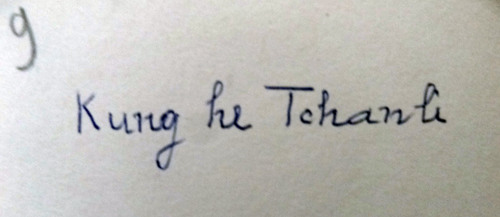 9
Kung he Tchanli